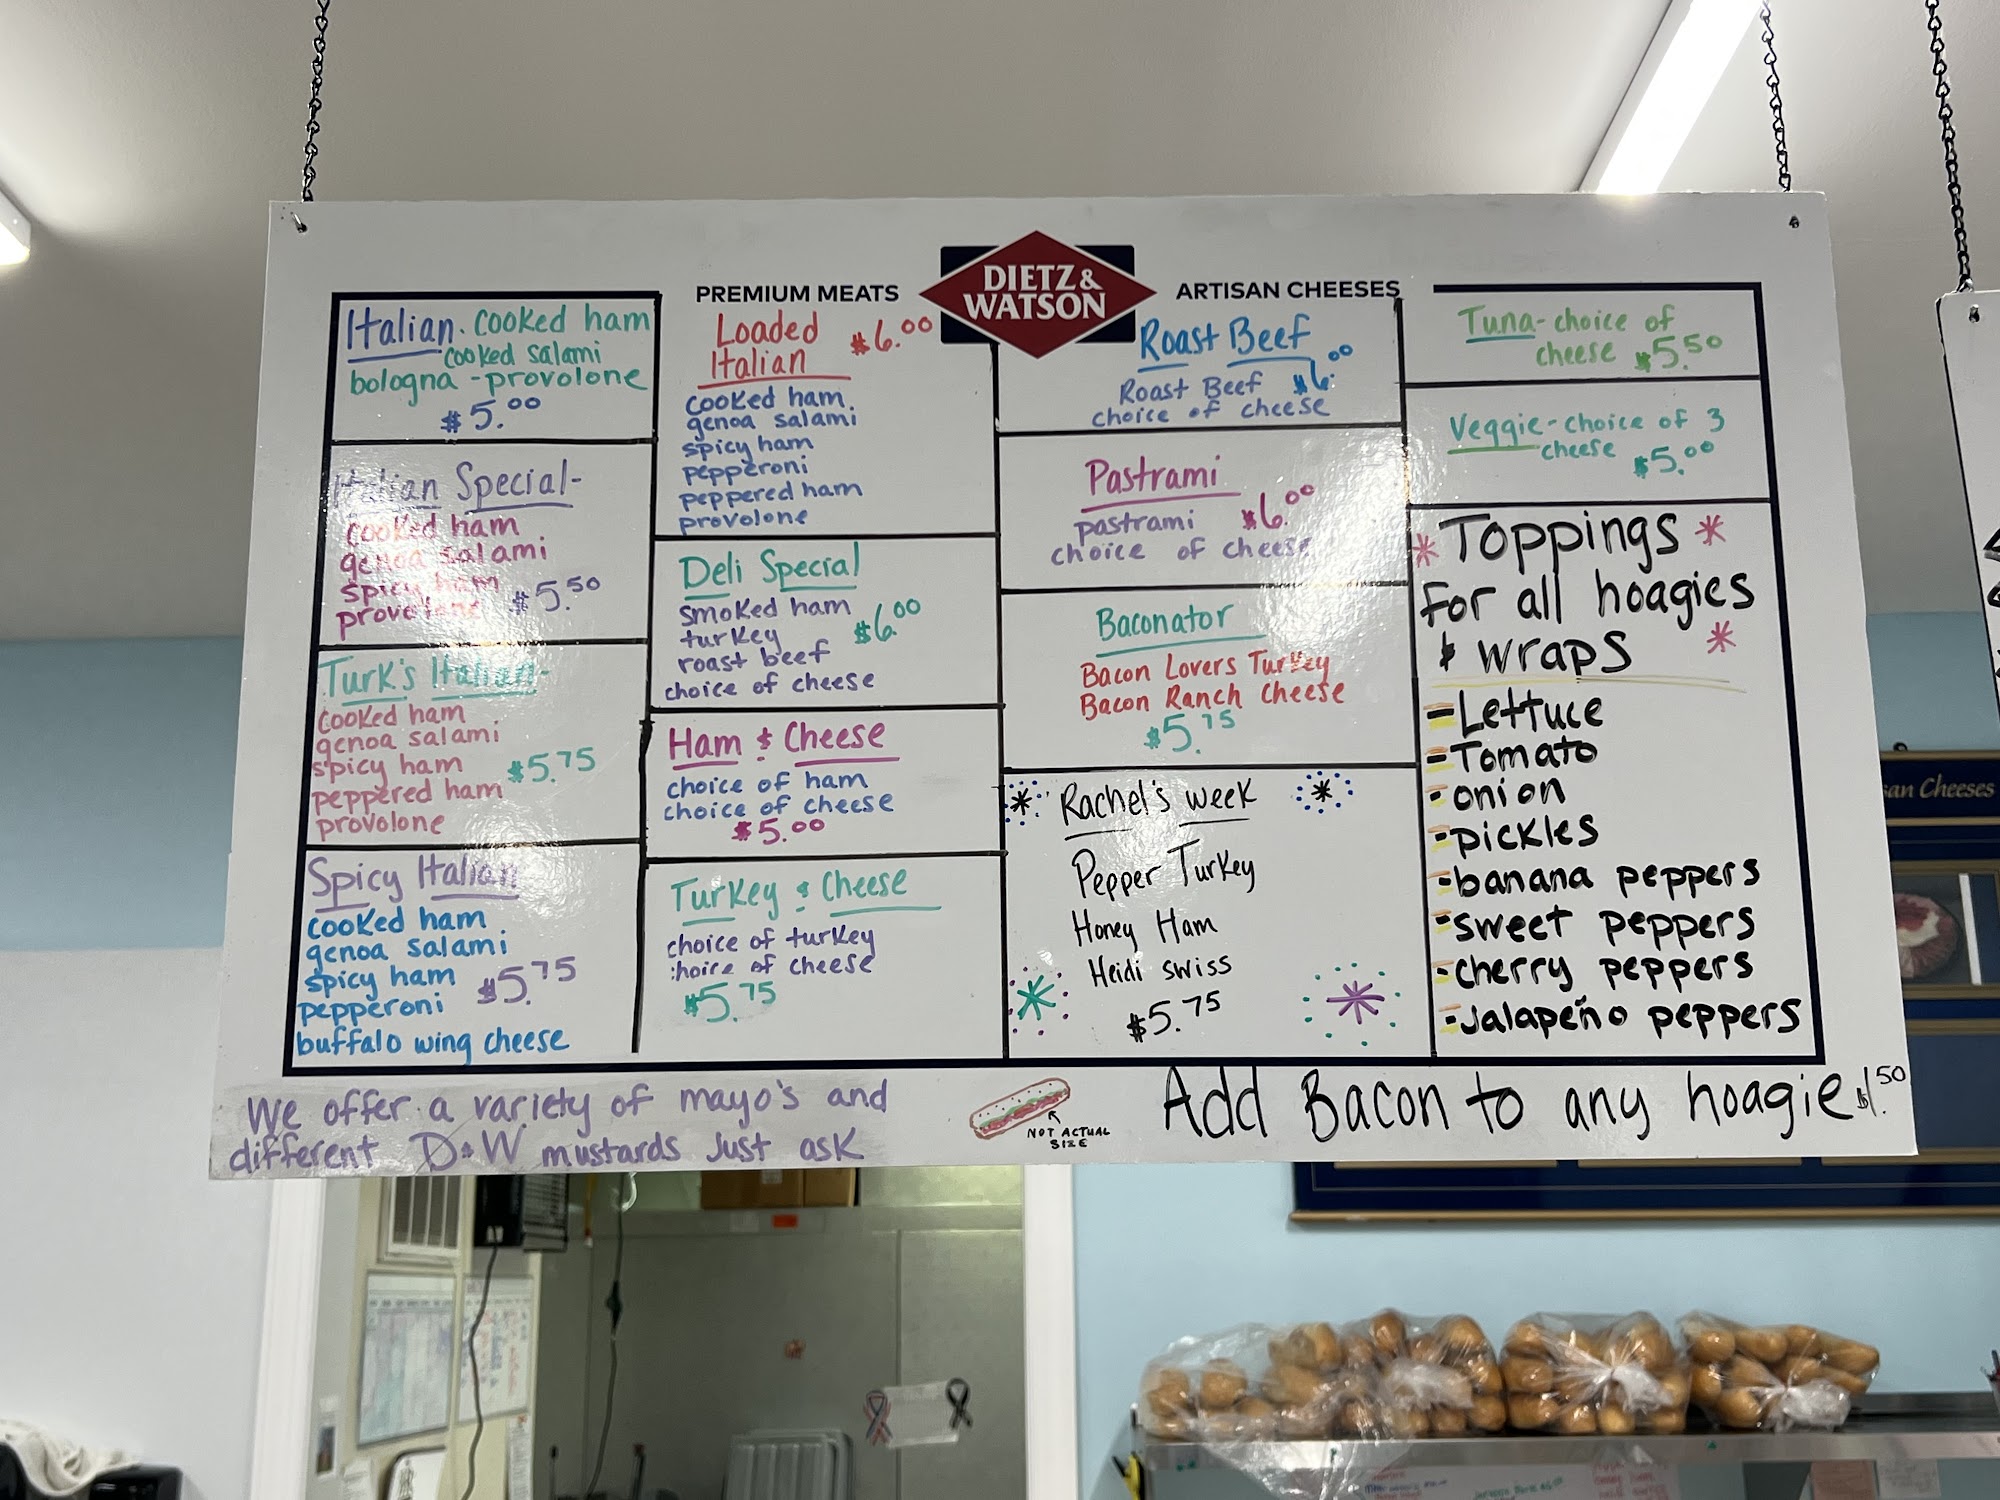 PREMIUM MEATS
DIETZ &
WATSON
ARTISAN CHEESES
Italian. cooked ham
cooked salami
bologna - provolone
$5.00
Italian Special-
cooked ham
genoa salami
spicy ham
provolone $5.50
Turk's Italian-
cooked ham
genoa salami
spicy ham $5.75
peppered ham
provolone
Spicy Italian
cooked ham
genoa salami
spicy ham $5.75
pepperoni
buffalo wing cheese
Loaded $6.00
Italian
cooked ham
genoa salami
spicy ham
pepperoni
peppered ham
provolone
Deli Special
smoked ham $6.00
turkey
roast beef
choice of cheese
Ham & Cheese
choice of ham
choice of cheese
$5.00
Turkey & Cheese
choice of turkey
choice of cheese
$5.75
Roast Beef
Roast Beef $6.00
choice of cheese
Pastrami
pastrami $6.00
choice of cheese
Baconator
Bacon Lovers Turkey
Bacon Ranch cheese
$5.75
Rachel's week
Pepper Turkey
Honey Ham
Heidi swiss
$5.75
Tuna-choice of
cheese $5.50
Veggie-choice of 3
cheese $5.00
Toppings
for all hoagies
& wraps
-Lettuce
-Tomato
-onion
-pickles
-banana peppers
-sweet peppers
-cherry peppers
-jalapeño peppers
We offer a variety of mayo's and
different D&W mustards Just ask
NOT ACTUAL
SIZE
Add Bacon to any hoagie $1.50
san Cheeses